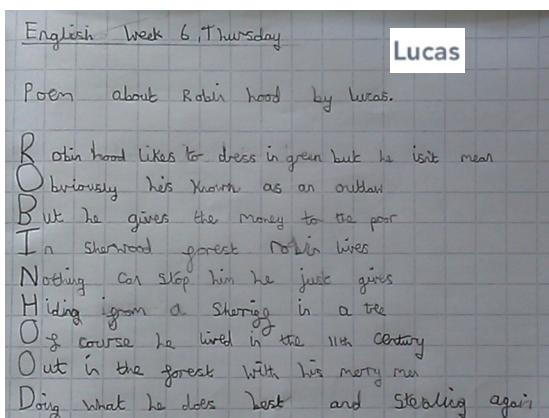 English Week 6, Thursday
Lucas
Poem about Robin hood by lucas.
Robin hood likes to dress in green but he isit mean
Obviously he's known as an outlaw
But he gives the money to the poor
In Sherwood forest robin lives
Nothing can stop him he just gives
Hiding from a Sherriff in a tree
Of course he lived in the 11th Century
Out in the forest with his merry men
Doing what he does best and stealing again